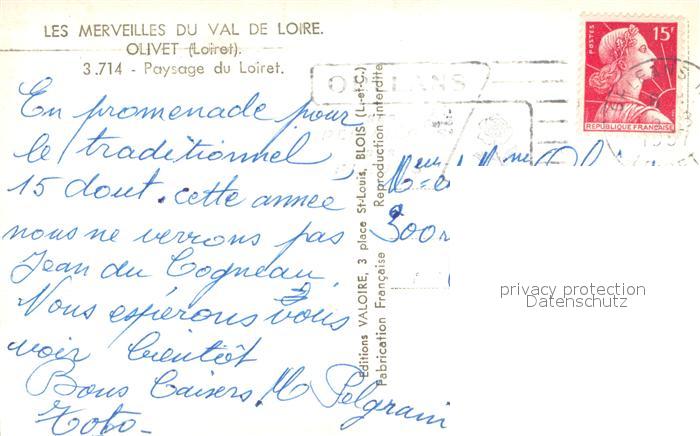 LES MERVEILLES DU VAL DE LOIRE.
OLIVET (Loiret).
3.714 - Paysage du Loiret.
En promenade pour
le traditionnel
15 dout. cette année
nous ne verrons pas
Jean du Cogneau.
Nous espérons vous
voir bientôt
Bons Baisers. M Pelgrain
Toto-
Editions VALOIRE, 3 place St-Louis, BLOIS (L.-et-C.)
Fabrication Française Reproduction interdite
ORLEANS
POSTES 15F
REPUBLIQUE FRANÇAISE
privacy protection
Datenschutz